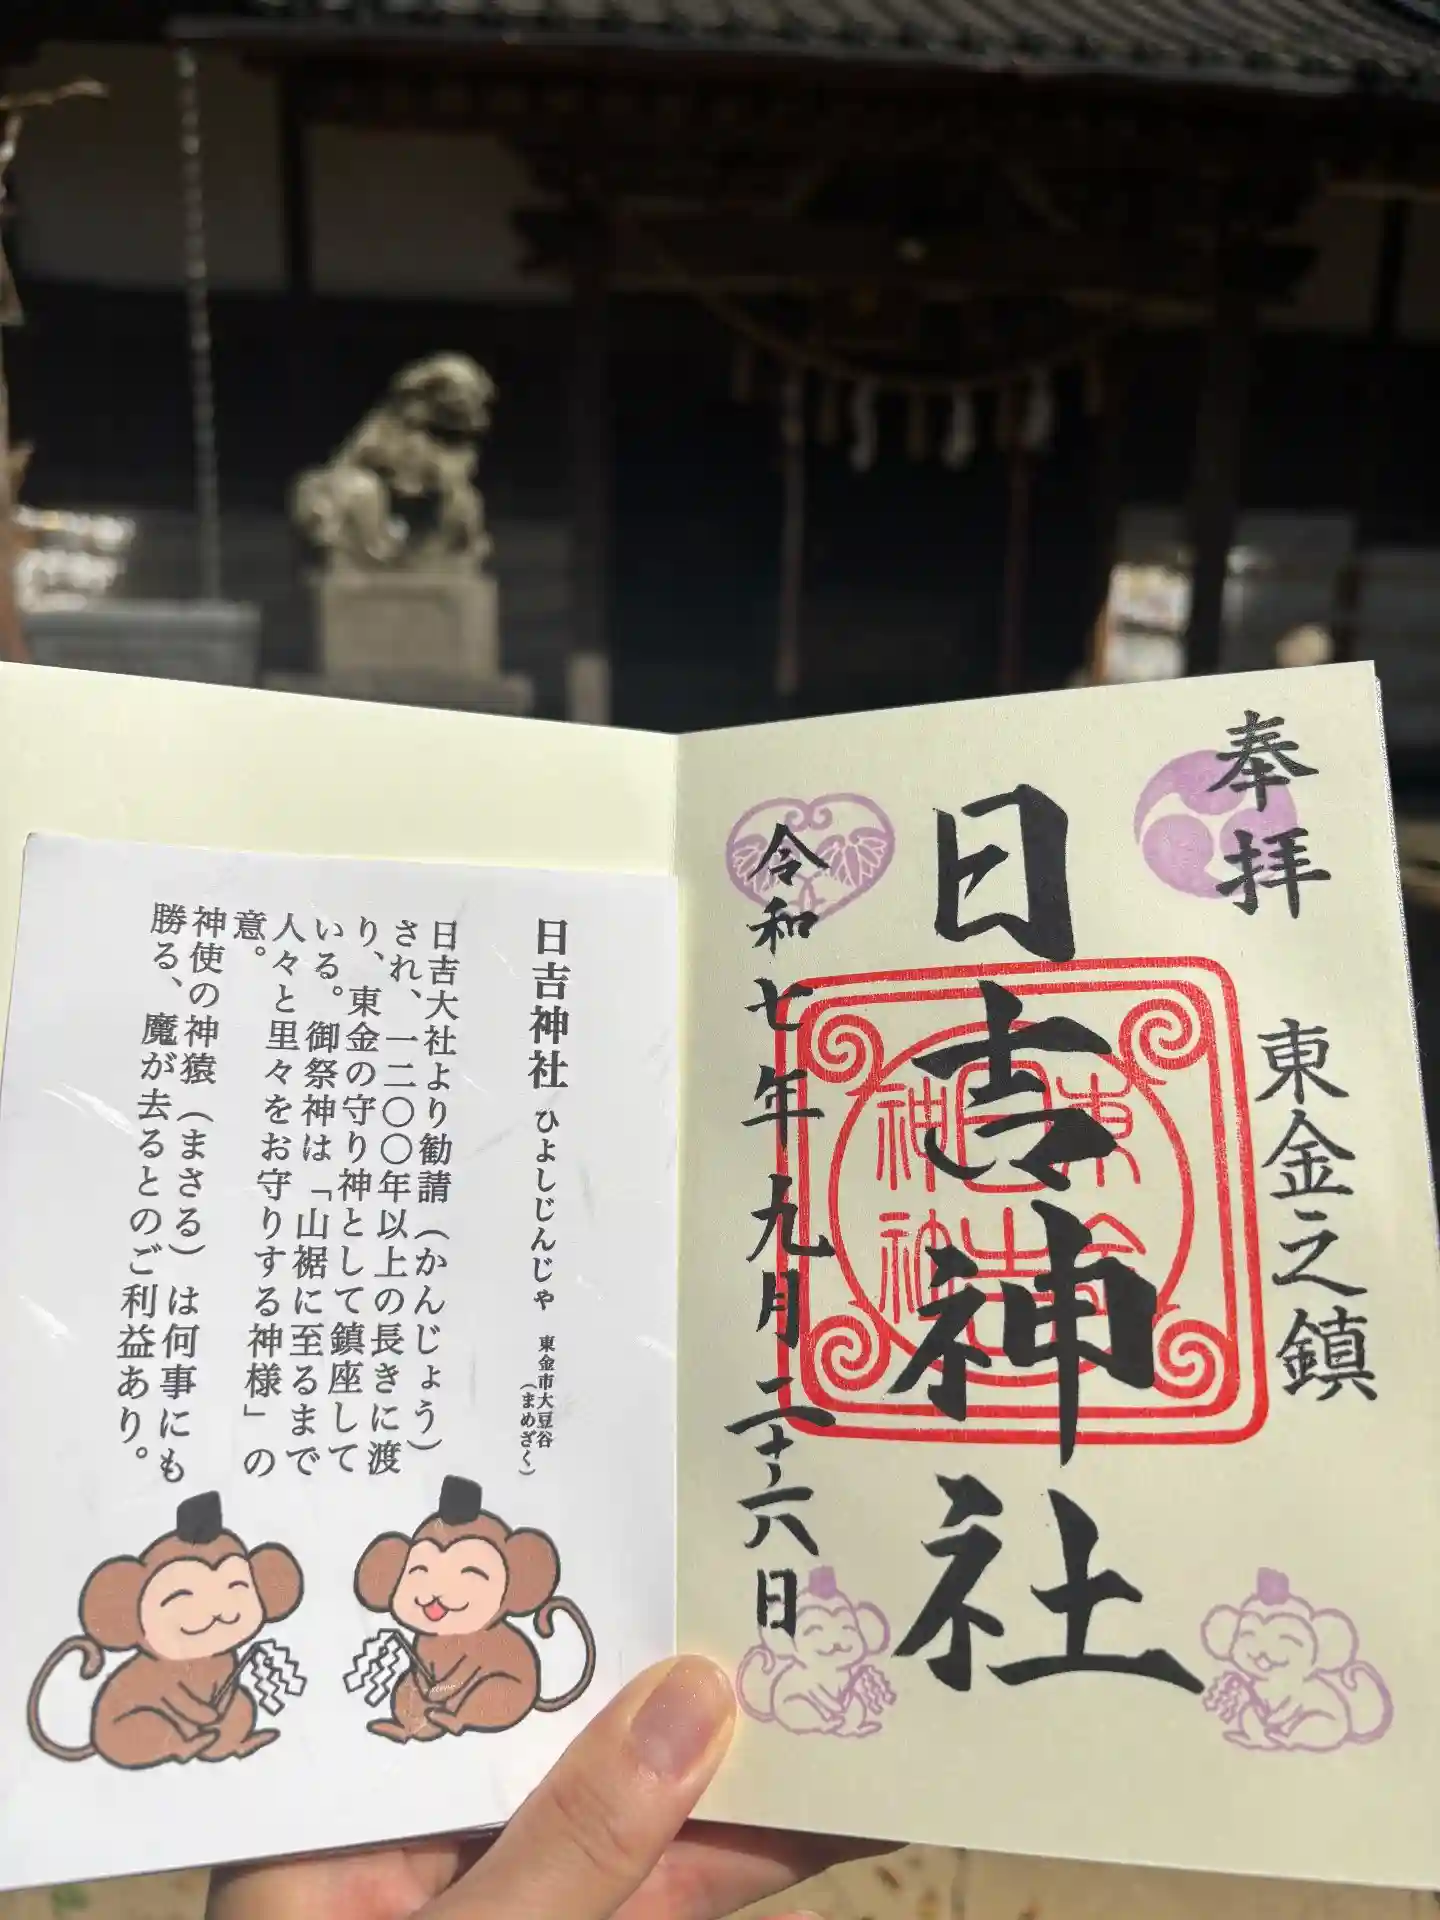 奉拝
東金之鎮
日吉神社
令和七年九月二十六日
東金
日吉
神社
日吉神社 ひよしじんじゃ 東金市大豆谷
(まめざく)
日吉大社より勧請(かんじょう)
され、一二〇〇年以上の長きに渡
り、東金の守り神として鎮座して
いる。御祭神は「山裾に至るまで
人々と里々をお守りする神様」の
意。
神使の神猿(まさる)は何事にも
勝る、魔が去るとのご利益あり。